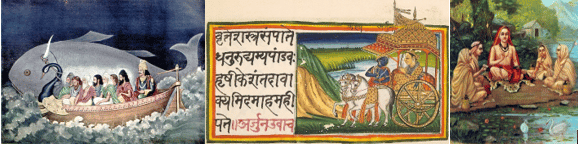 वृतेशस्त्रसंपाते
धनुरुद्यम्यपांडवः
हृषिकेशंतदावा
क्यमिदमाहमही
पते॥अर्जुनउवाच